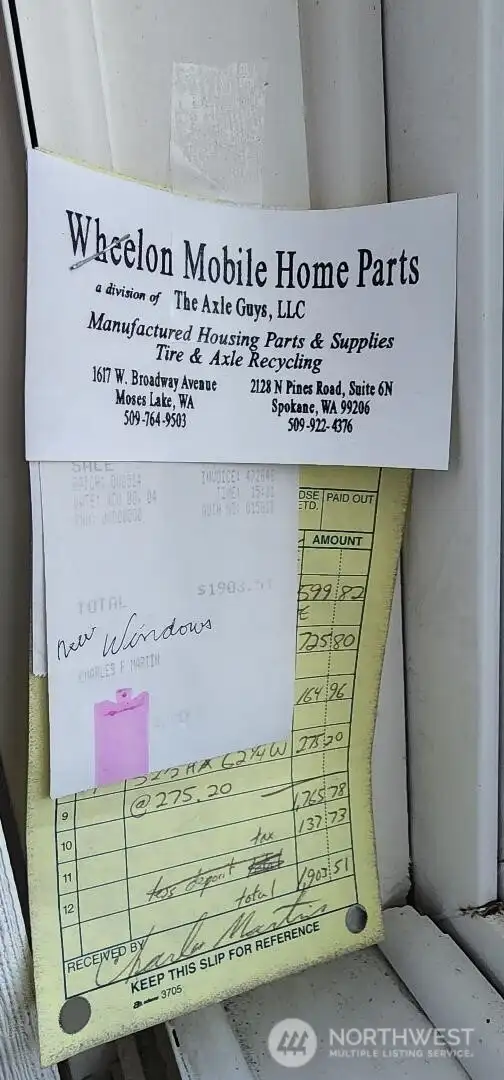 Wheelon Mobile Home Parts
a division of The Axle Guys, LLC
Manufactured Housing Parts & Supplies
Tire & Axle Recycling
1617 W. Broadway Avenue
Moses Lake, WA
509-764-9503
2128 N Pines Road, Suite 6N
Spokane, WA 99206
509-922-4376
SALE
TOTAL $1903.51
new Windows
CHARLES F MARTIN
PAID OUT
AMOUNT
599.82
725.80
164.96
62¼W 275.20
9 @275.20
1,765.78
10 tax 137.73
11 less deposit
12 total 1,903.51
RECEIVED BY Charles Martin
KEEP THIS SLIP FOR REFERENCE
3705
NORTHWEST
MULTIPLE LISTING SERVICE